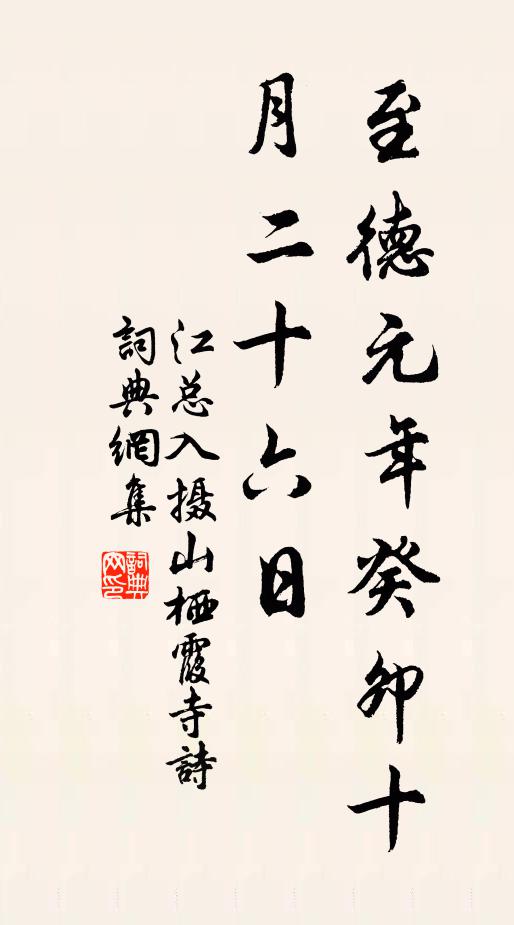 至德元年癸卯十
月二十六日
江总入摄山栖霞寺詩
詞典網集
詞典網印